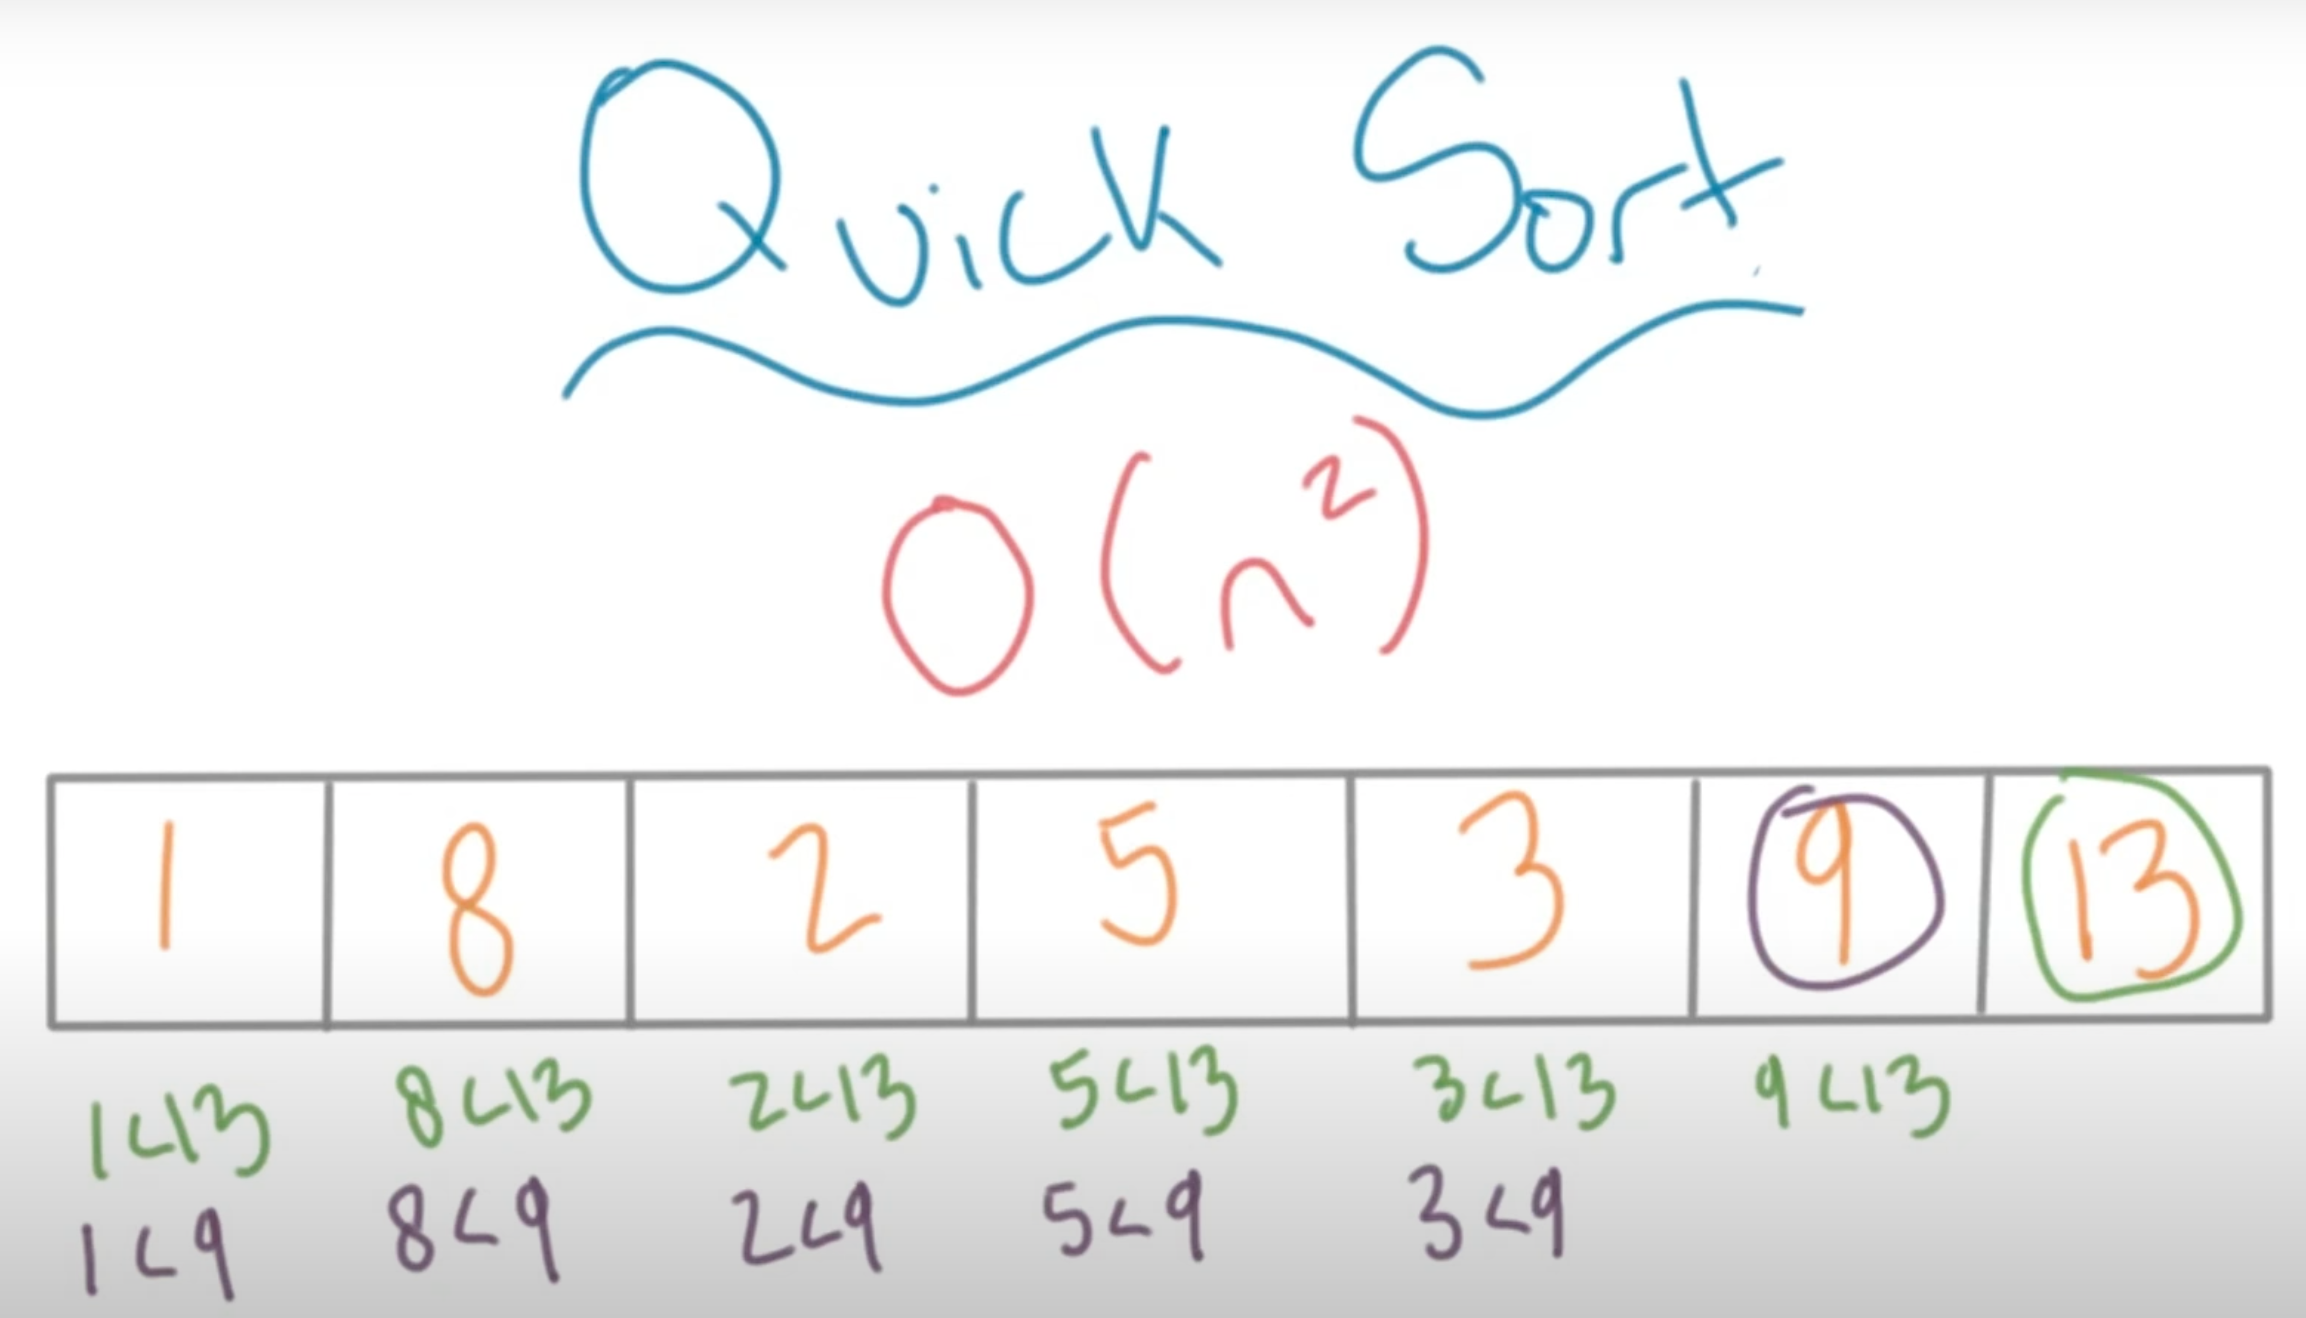 Quick Sort
O(n²)
1 8 2 5 3 9 13
1<13 8<13 2<13 5<13 3<13 9<13
1<9 8<9 2<9 5<9 3<9